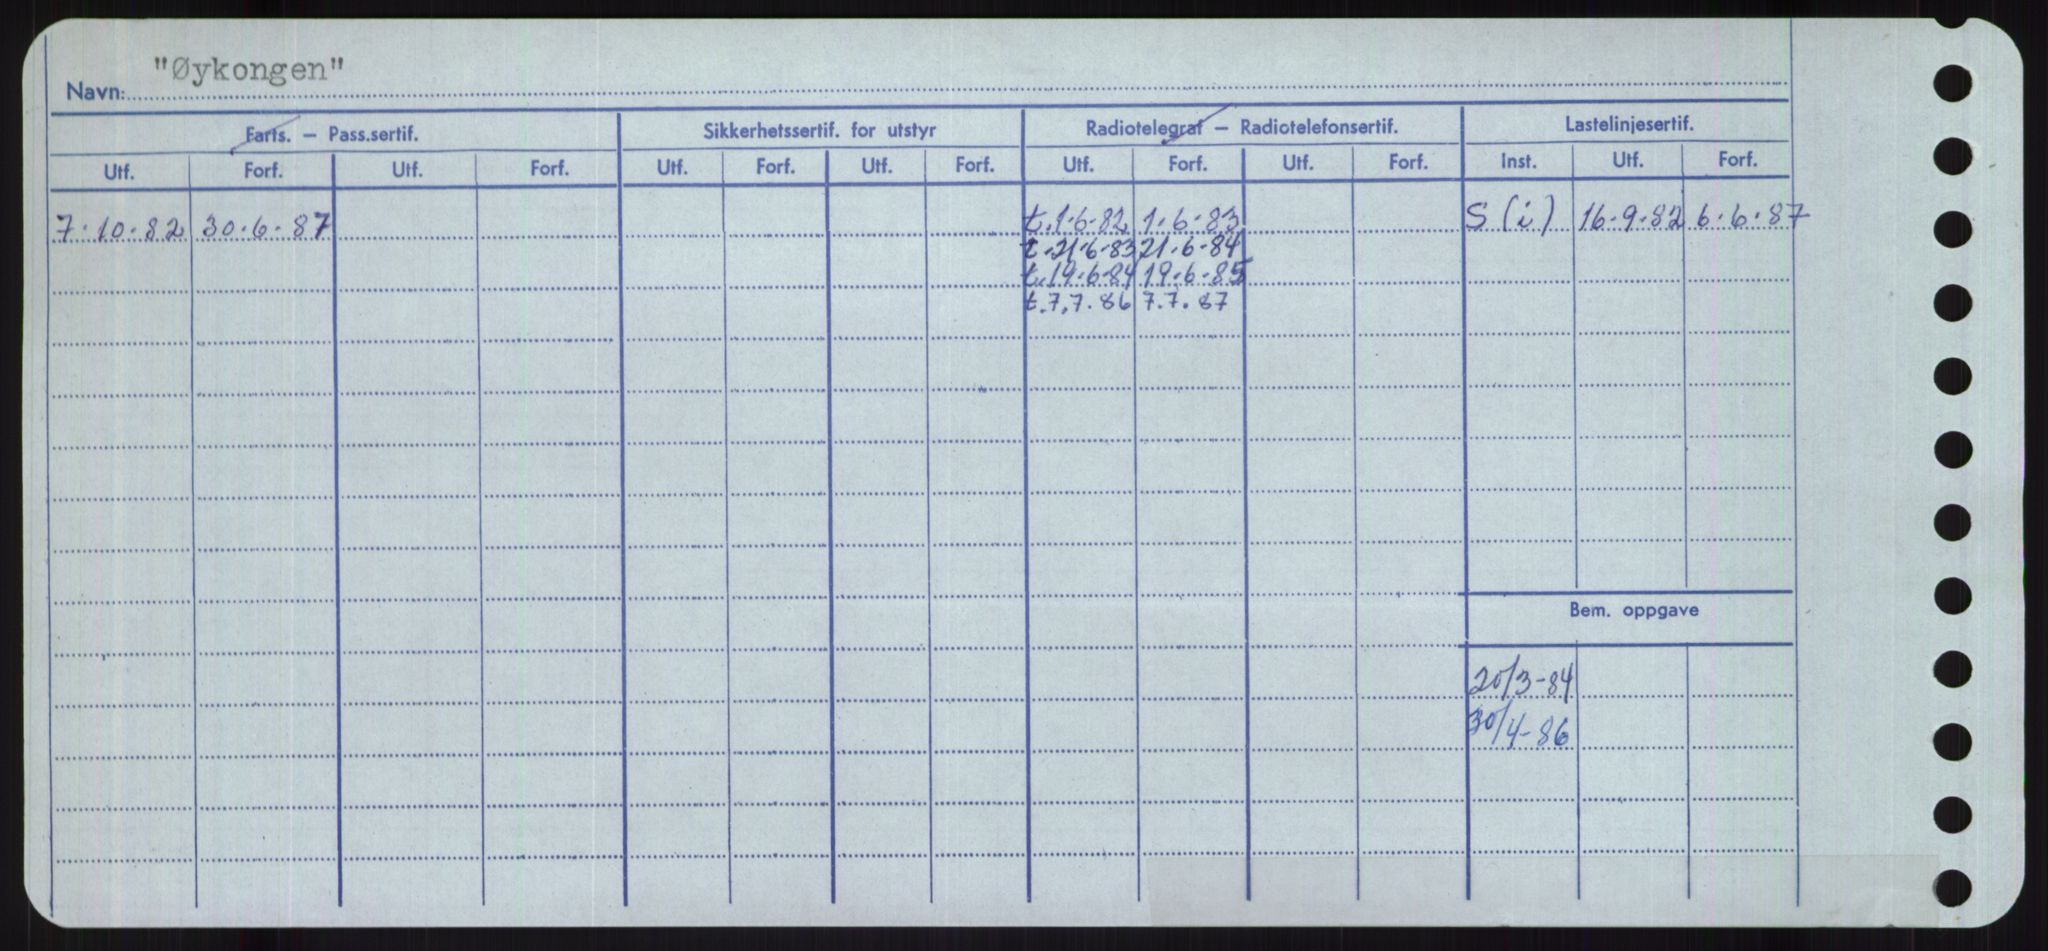 Navn: "Øykongen"
Farts. – Pass.sertif. Sikkerhetssertif. for utstyr Radiotelegraf – Radiotelefonsertif. Lastelinjesertif.
Utf. Forf. Utf. Forf. Utf. Forf. Utf. Forf. Utf. Forf. Utf. Forf. Inst. Utf. Forf.
7-10-82 30-6-87 t.1-6-82 1-6-83 S (i) 16-9-82 6-6-87
t.21-6-83 21-6-84
t.19-6-84 19-6-85
t.7.7.86 7.7.87
Bem. oppgave
20/3-84
30/4-86